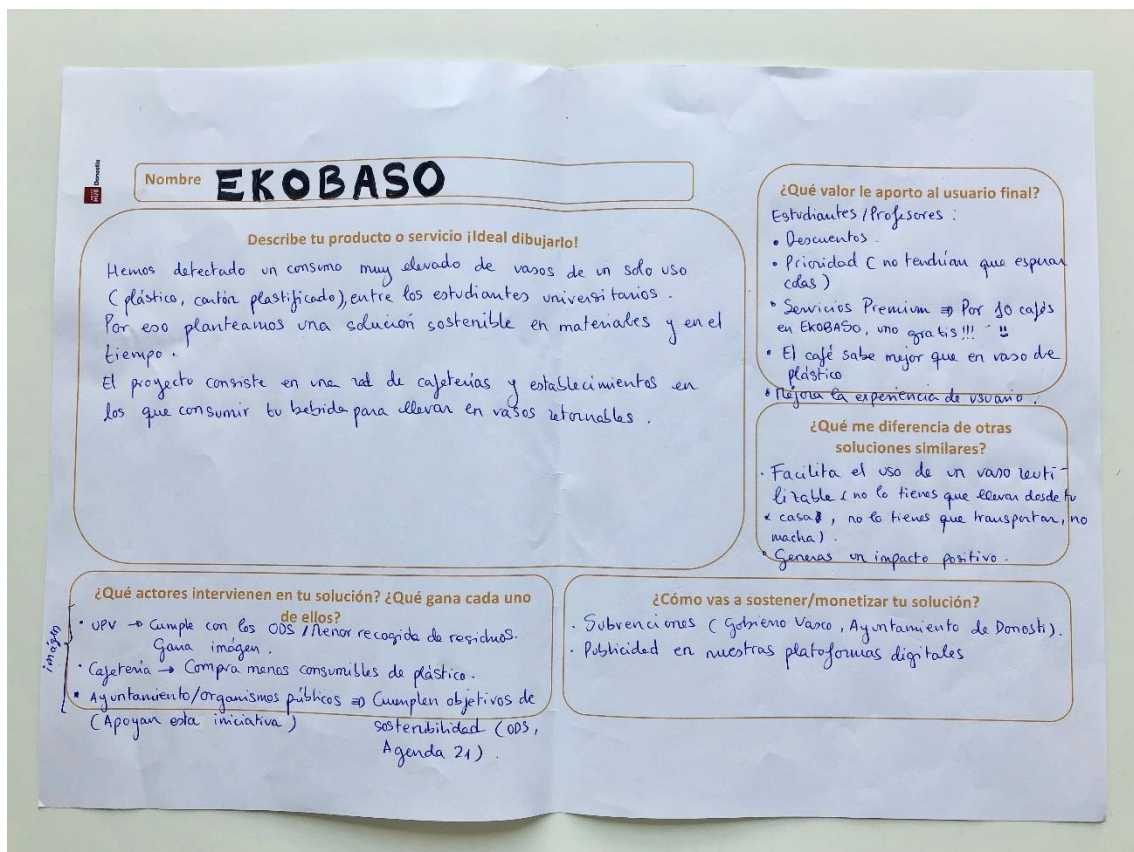 Donostia
HUB
Nombre EKOBASO
Describe tu producto o servicio ¡Ideal dibujarlo!
Hemos detectado un consumo muy elevado de vasos de un solo uso
(plástico, cartón plastificado), entre los estudiantes universitarios.
Por eso planteamos una solución sostenible en materiales y en el
tiempo.
El proyecto consiste en una red de cafeterías y establecimientos en
los que consumir tu bebida para llevar en vasos retornables.
¿Qué valor le aporto al usuario final?
Estudiantes/Profesores:
• Descuentos.
• Prioridad (no tendrían que esperar
colas)
• Servicios Premium ⇒ Por 10 cafés
en EKOBASO, uno gratis!!!
• El café sabe mejor que en vaso de
plástico
• Mejora la experiencia de usuario.
¿Qué me diferencia de otras
soluciones similares?
• Facilita el uso de un vaso reuti-
lizable (no lo tienes que llevar desde tu
casa, no lo tienes que transportar, no
macha).
• Generas un impacto positivo.
¿Qué actores intervienen en tu solución? ¿Qué gana cada uno
de ellos?
imágen
• UPV → Cumple con los ODS / Menor recogida de residuos.
Gana imágen.
• Cafetería → Compra menos consumibles de plástico.
• Ayuntamiento/organismos públicos ⇒ Cumplen objetivos de
(Apoyan esta iniciativa) sostenibilidad (ODS,
Agenda 21).
¿Cómo vas a sostener/monetizar tu solución?
• Subvenciones (Gobierno Vasco, Ayuntamiento de Donosti).
• Publicidad en nuestras plataformas digitales